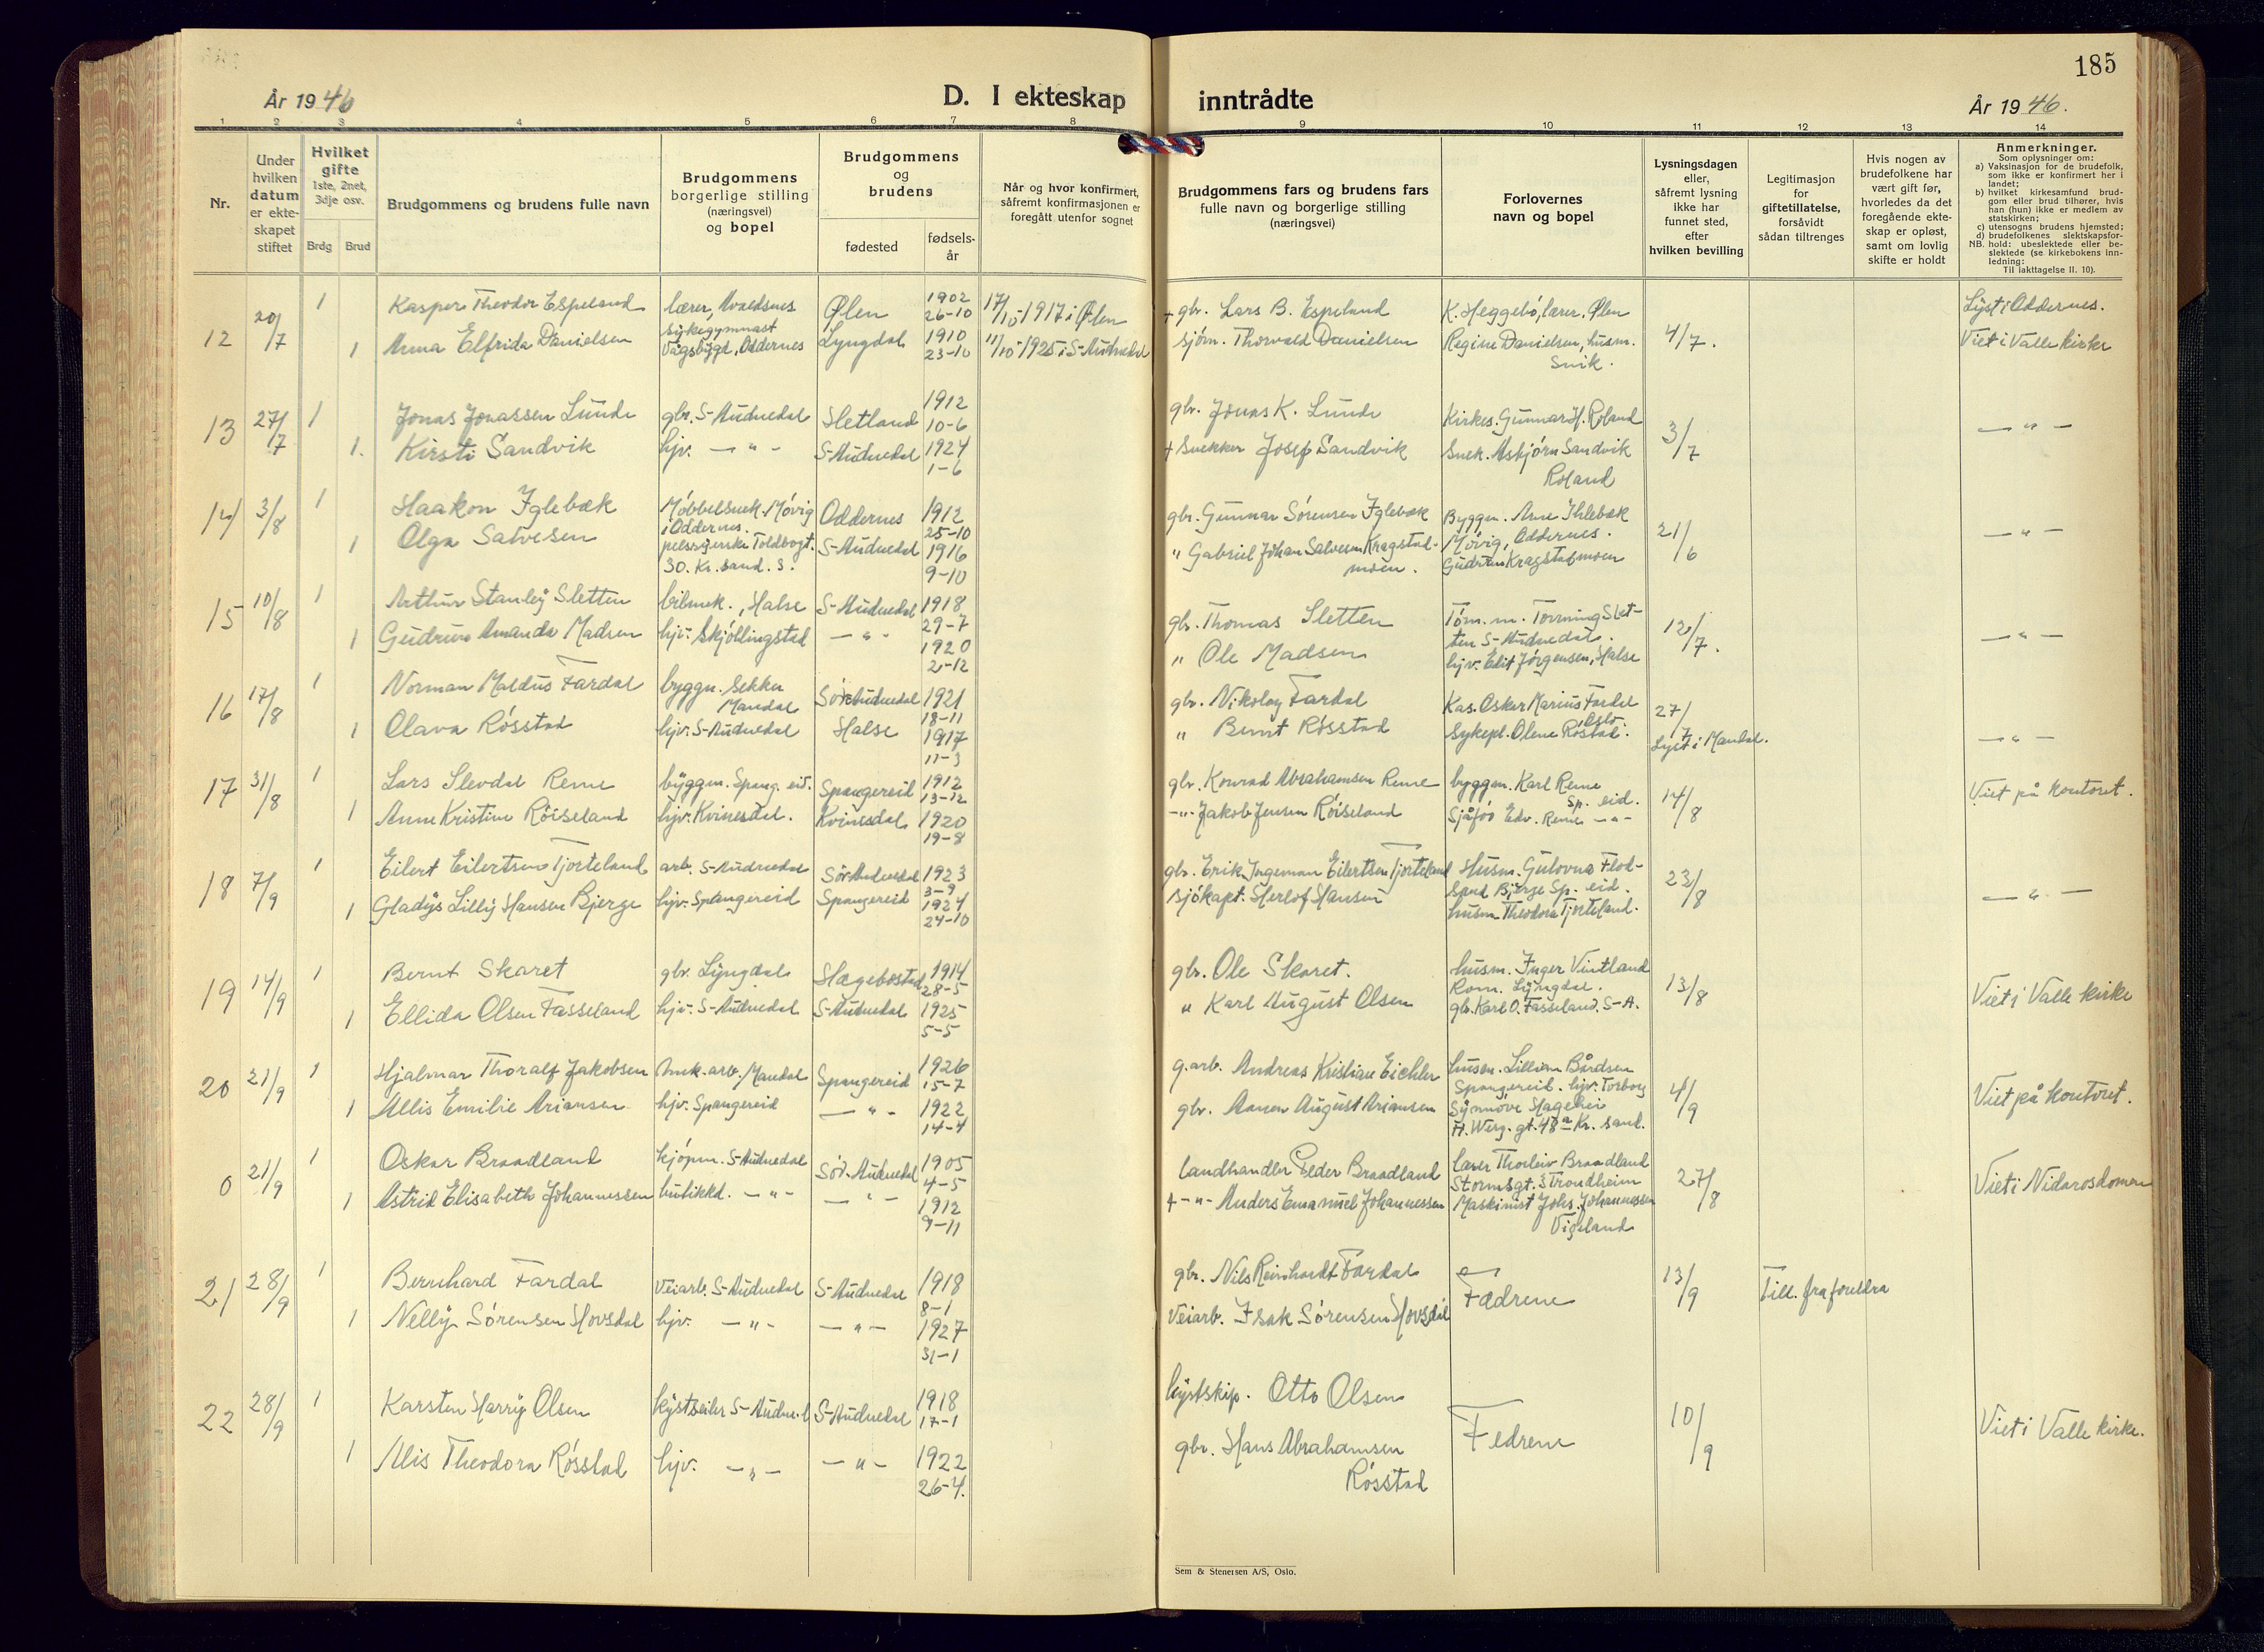 185
År 1946
D. I ekteskap inntrådte
År 1946.
1 2 3 4 5 6 7 8 9 10 11 12 13 14
Nr.
Under hvilken datum er ekteskapet stiftet
Hvilket gifte
1ste, 2net, 3dje osv.
Brdg Brud
Brudgommens og brudens fulle navn
Brudgommens borgerlige stilling (næringsvei) og bopel
Brudgommens og brudens
fødested
fødselsår
Når og hvor konfirmert, såfremt konfirmasjonen er foregått utenfor sognet
Brudgommens fars og brudens fars fulle navn og borgerlige stilling (næringsvei)
Forlovernes navn og bopel
Lysningsdagen eller, såfremt lysning ikke har funnet sted, efter hvilken bevilling
Legitimasjon for giftetillatelse, forsåvidt sådan tiltrenges
Hvis nogen av brudefolkene har vært gift før, hvorledes da det foregående ekteskap er opløst, samt om lovlig skifte er holdt
Anmerkninger.
Som oplysninger om:
a) Vaksinasjon for de brudefolk, som ikke er konfirmert her i landet;
b) hvilket kirkesamfund brudgom eller brud tilhører, hvis han (hun) ikke er medlem av statskirken;
c) utensogns brudens hjemsted;
d) brudefolkenes slektskapsforhold: ubeslektede eller beslektede (se kirkebokens innledning:
NB. Til iakttagelse II. 10).
12 20/7 1 Kasper Theodor Espeland lærer, Avaldsnes Ølen 1902 26-10 17/10-1917 i Ølen + gbr. Lars B. Espeland K. Heggebø, lærer, Ølen 4/7. Lyst i Oddernes.
1 Anna Elfrida Danielsen sykegymnast Vågsbygd, Oddernes Lyngdal 1910 23-10 11/10-1925 i S-Audnedal sjøm. Thorvald Danielsen Regine Danielsen, husm. Snik. Viet i Valle kirke
13 27/7 1 Jonas Jonassen Lunde gbr. S-Audnedal Hetland 1912 10-6 gbr. Jonas K. Lunde Kirkes. Gunnar H. Roland 3/7 — " —
1. Kirsti Sandvik hjv. — " - S-Audnedal 1924 1-6 + Snekker Josef Sandvik Snek. Asbjørn Sandvik Roland
14 3/8 1 Haakon Iglebæk Møbbelsnek. Møvig i Oddernes. Oddernes 1912 25-10 gbr. Gunnar Sørensen Iglebæk Byggm. Arne Ihlebæk Møvig, Oddernes. 21/6 — " —
1 Olga Salvesen pelssyerske Toldbogt. 30. Kr.sand. S. S-Audnedal 1916 9-10 " Gabriel Johan Salvesen Kragstadmoen. Gudrun Kragstadmoen
15 10/8 1 Arthur Stanley Sletten bilmek., Halse S-Audnedal 1918 29-7 gbr. Thomas Sletten Tøm.m. Tønning Sletten S-Audnedal. 12/7. — " —
1 Gudrun Amanda Madsen hjv. Skjøllingstad — " - 1920 2-12 " Ole Madsen hjv. Edit Jørgensen, Halse
16 17/8 1 Norman Maldus Fardal byggn. Sekku Mandal Sør-Audnedal 1921 18-11 gbr. Nikolay Fardal Kas. Osker Marius Fardal Oslo. 27/7 Lyst i Mandal. — " —
1 Olava Røsstad hjv. S-Audnedal Halse 1917 11-3 " Bernt Røsstad Sykepl. Olene Røstad.
17 31/8 1 Lars Slevdal Reme byggm. Spang. eid. Spangereid 1912 13-12 gbr. Konrad Abrahamsen Reme byggm. Karl Reme Sp. eid. 14/8 Viet på kontoret.
1 Anne Kristine Røiseland hjv. Kvinesdal. Kvinesdal 1920 19-8 -"- Jakob Jensen Røiseland Sjåfør Edv. Reme — " -
18 7/9 1 Eilert Eilertsen Tjorteland arb. S-Audnedal Sør-Audnedal 1923 3-9 gbr. Erik Ingeman Eilertsen Tjorteland Husm. Gulovna Flodsand Bjerge Sp. eid. 23/8 — " —
1 Gladys Lilly Hansen Bjerge hjv. Spangereid Spangereid 1924 24-10 sjøkapt. Herlof Hansen husm Theodora Tjorteland.
19 14/9 1 Bernt Skaret gbr. Lyngdal Hægebostad 1914 28-5 gbr. Ole Skaret. husm. Inger Vintland Rom. Lyngdal. 13/8 Viet i Valle kirke
1 Ellida Olsen Fasseland hjv. S-Audnedal S-Audnedal 1925 5-5 " Karl August Olsen gbr. Karl O. Fasseland, S-A.
20 21/9 1 Hjalmar Thoralf Jakobsen Snek. arb. Mandal Spangereid 1926 15-7 g.arb. Andreas Kristian Eichler husm. Lillian Bårdsen Spangereid. hjv. Torborg 4/9 Viet på kontoret.
1 Allis Emilie Ariansen hjv. Spangereid — " - 1922 14-4 gbr. Aanen August Ariansen Synnøve Hagelin H. Werg. gt. 48 a Kr. sand.
0 21/9 1 Oskar Braadland kjøpm. S-Audnedal Sør-Audnedal 1905 4-5 landhandler Peder Braadland lærer Thorleiv Braadland Stormsgt. 5 Trondheim 27/8 Viet i Nidarosdomen
1 Astrid Elisabeth Johannessen butikkd. — " - — " - 1912 9-11 + -"- Anders Emanuel Johannessen Maskinist Johs. Johannessen Vigeland
21 28/9 1 Bernhard Fardal Veiarb. S-Audnedal S-Audnedal 1918 8-1 gbr. Nils Reinhardt Fardal Fædrene 13/9 Till. fra foreldra
1 Nelly Sørensen Hovsdal hjv. — " - — " — 1927 31-1 Veiarb. Isak Sørensen Hovsdal
22 28/9 1 Karsten Harry Olsen kystseiler S-Audne.l S-Audnedal 1918 17-1 kystskip. Otto Olsen Fedrene 10/9 Viet i Valle kirke.
1 Alis Theodora Røsstad hjv. — " — — " — 1922 26-4. gbr. Hans Abrahamsen Røsstad
Sem & Stenersen A/S, Oslo.